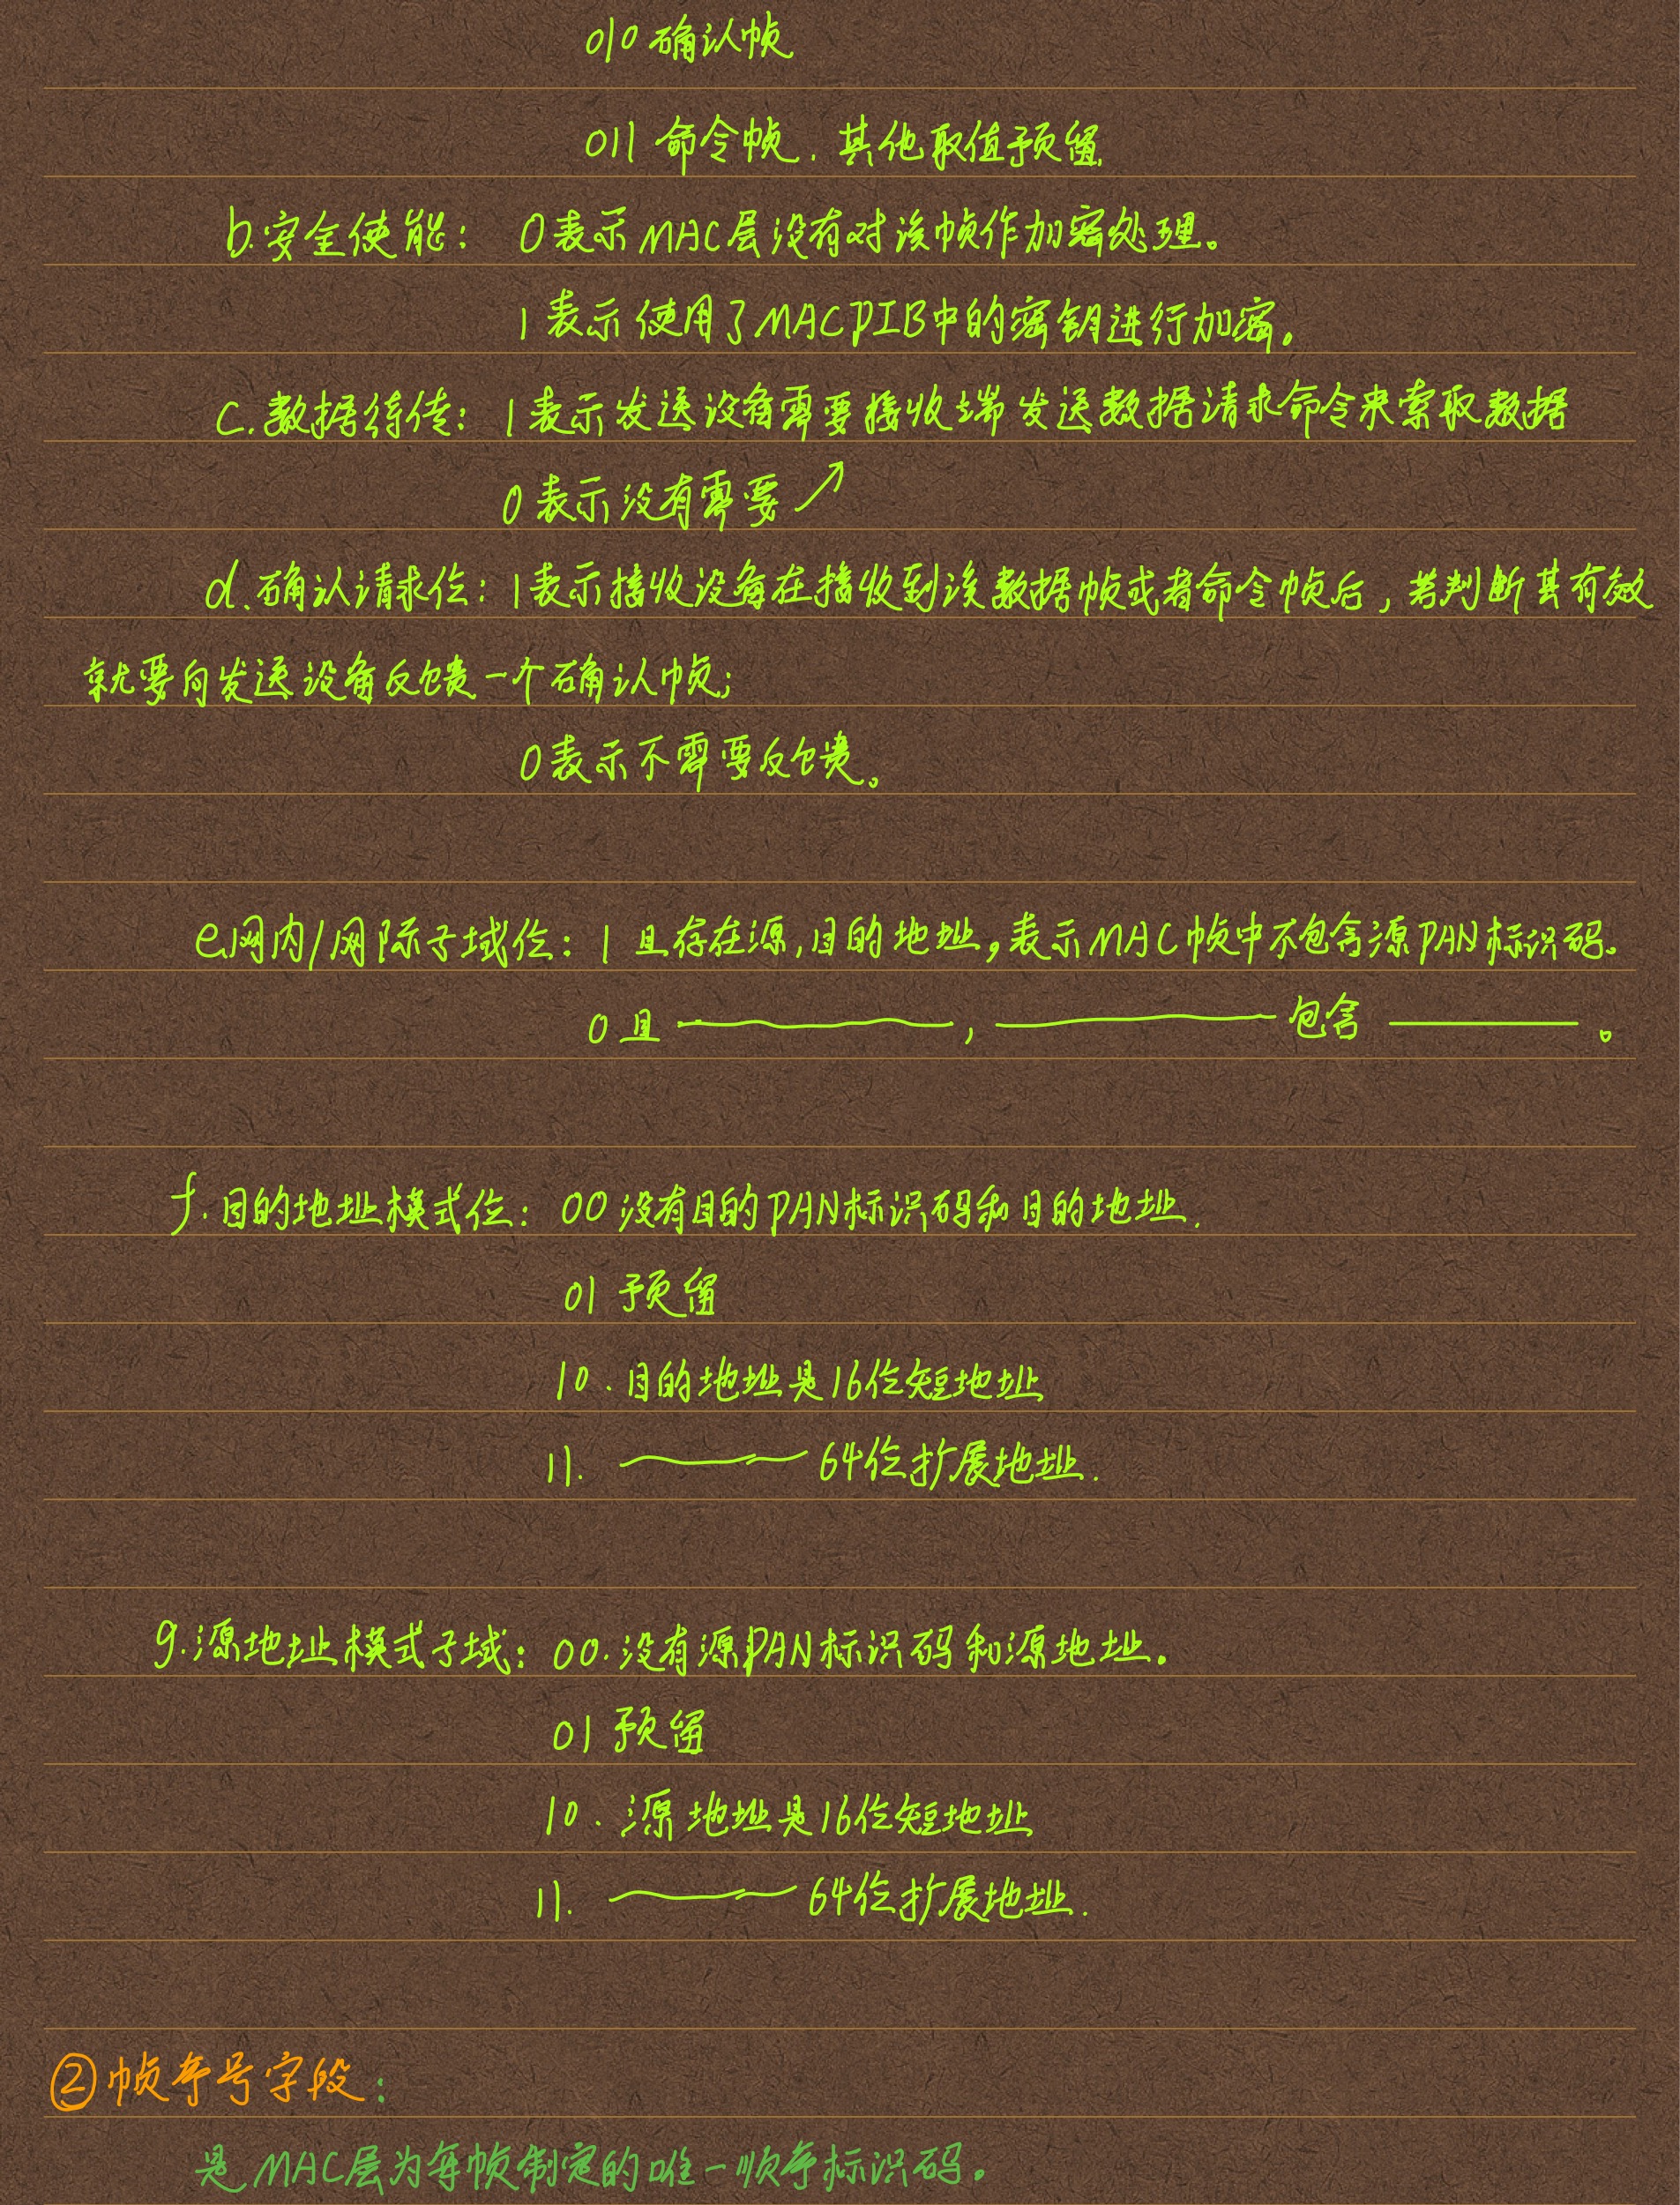 010 确认帧
011 命令帧. 其他取值预留.
b.安全使能: 0表示MAC层没有对该帧作加密处理。
1表示使用了MAC PIB中的密钥进行加密。
c.数据待传: 1表示发送设备需要接收端发送数据请求命令来索取数据
0表示没有需要↗
d.确认请求位: 1表示接收设备在接收到该数据帧或者命令帧后,若判断其有效
就要向发送设备反馈一个确认帧;
0表示不需要反馈。
e.网内/网际子域位: 1 且存在源,目的地址,表示MAC帧中不包含源PAN标识码。
0且 ———, ——— 包含 ———。
f.目的地址模式位: 00没有目的PAN标识码和目的地址.
01 预留
10.目的地址是16位短地址
11. ——— 64位扩展地址.
g.源地址模式子域: 00.没有源PAN标识码和源地址.
01 预留
10.源地址是16位短地址
11. ——— 64位扩展地址.
②帧序号字段:
是MAC层为每帧制定的唯一顺序标识码。